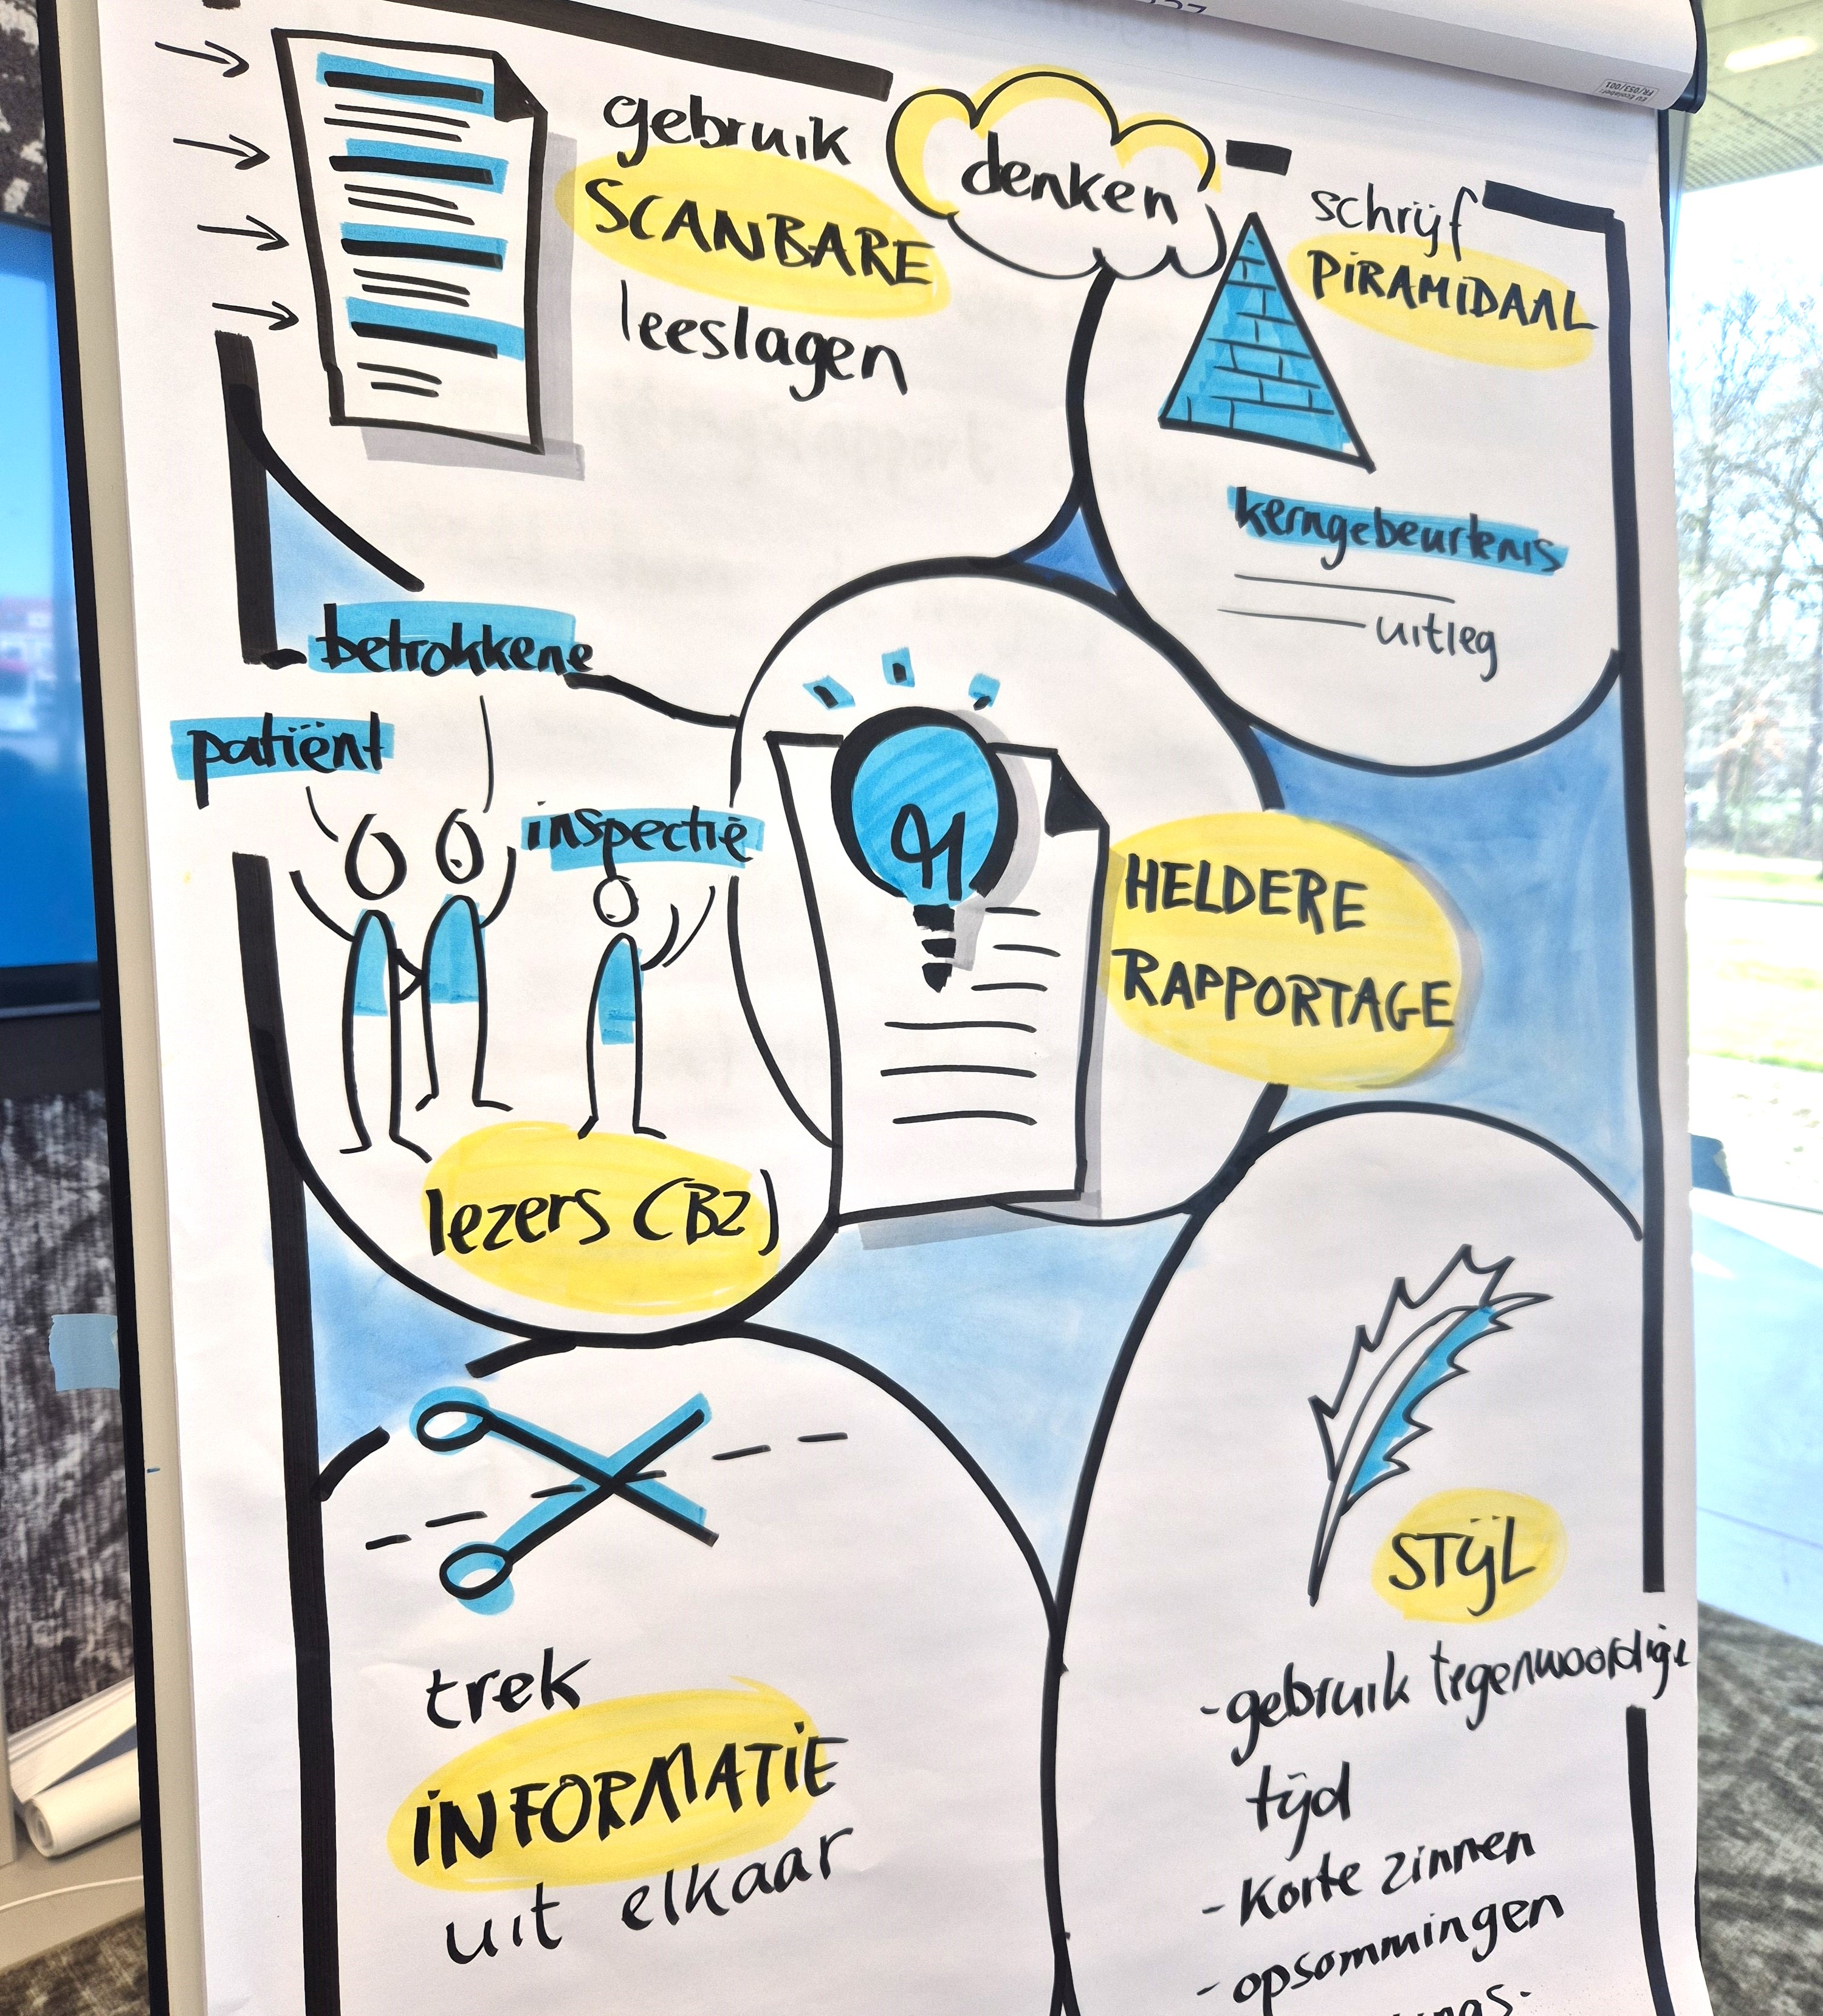 gebruik
SCANBARE
leeslagen
denken
schrijf
PIRAMIDAAL
kerngebeurtenis
uitleg
betrokkene
patiënt
inspectie
lezers (B2)
HELDERE
RAPPORTAGE
trek
INFORMATIE
uit elkaar
STIJL
- gebruik tegenwoordige
tijd
- korte zinnen
- opsommingen